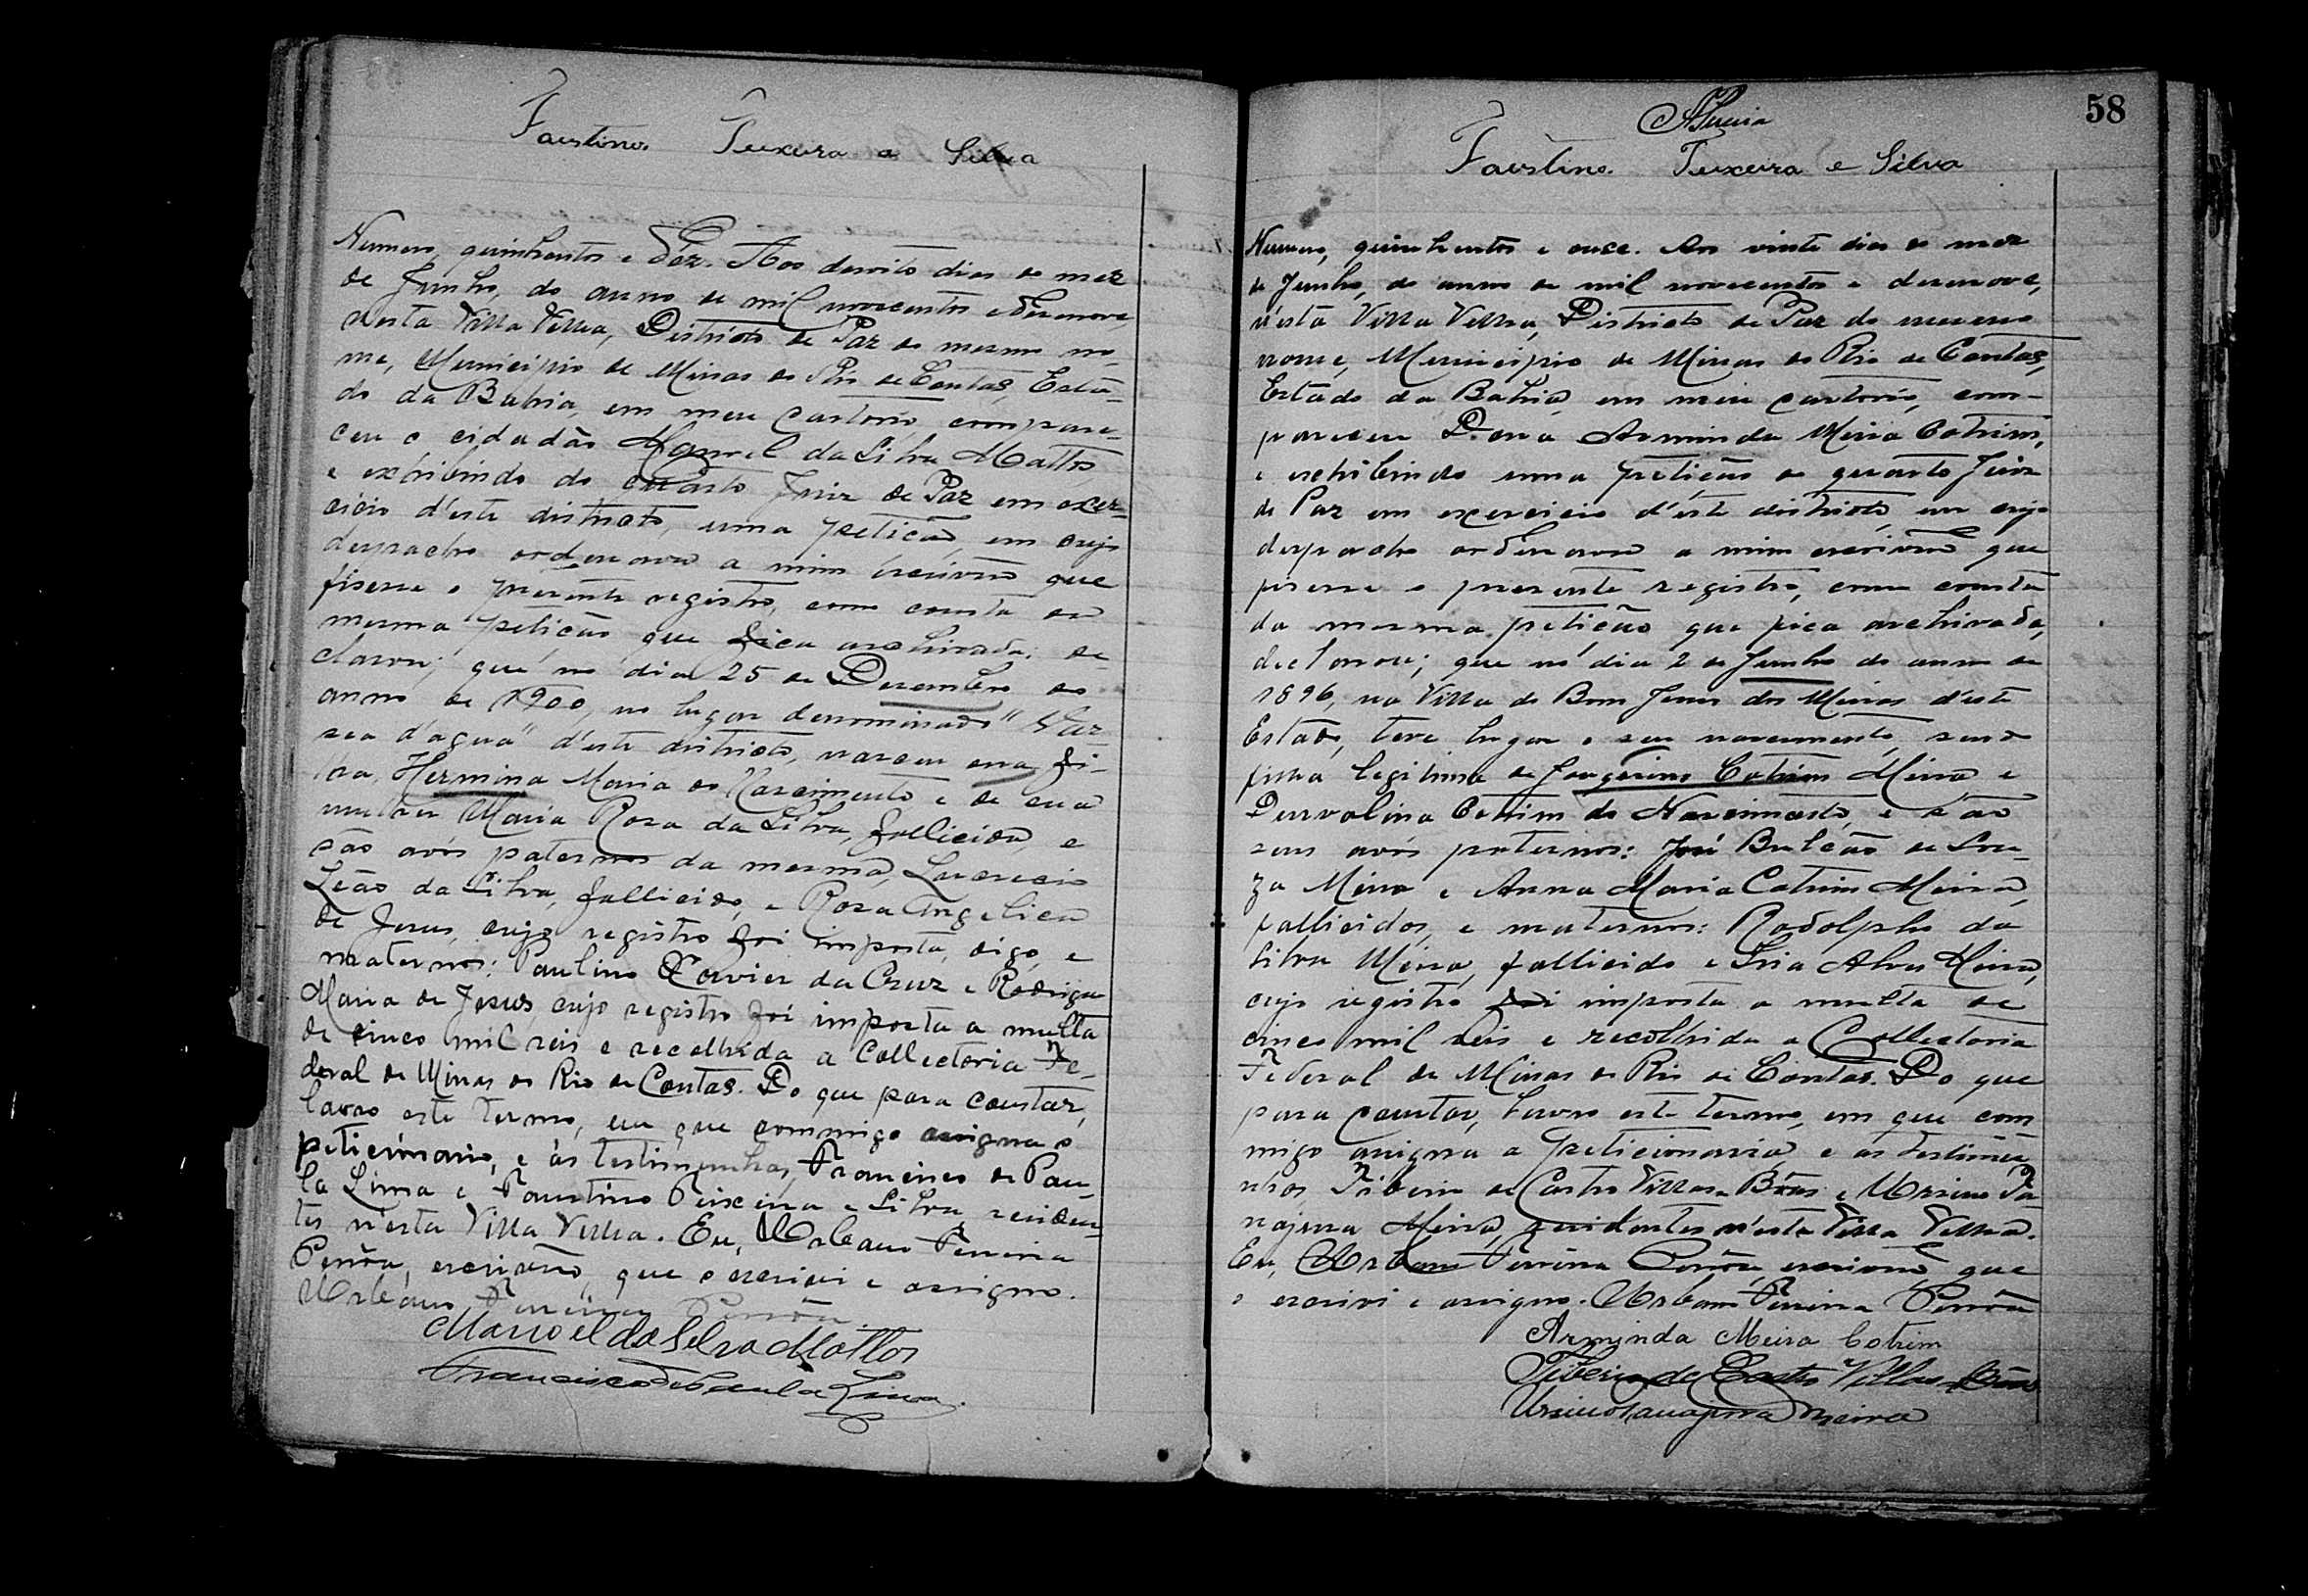 Faustino Teixeira e Silva
Numero, quinhentos e Déz. Aos desoito dias do mez
de Junho, do anno de mil novecentos e desenove
nesta Villa Velha, Districto de Paz do mesmo no-
me, Municipio de Minas do Rio de Contas, Esta-
do da Bahia, em meu cartorio, compare-
ceu o cidadão Manoel da Silva Mattos
e exhibindo do quarto Juiz de Paz em exer-
cicio d'este districto, uma petição, em cujo
despacho ordenava a mim escrivão que
fisesse o presente registro, como consta da
mesma petição que fica archivada; de-
clarou; que no dia 25 de Dezembro do
anno de 1900, no lugar denominado "Var-
sea d'agua" d'este districto, nasceu sua fi-
lha, Hermina Maria do Nascimento e de sua
mulher Maria Rosa da Silva, fallicida e
são avós paternos da mesma, Lucrecio
Leão da Silva, fallicido, e Rosa Angelica
de Jesus, cujo registro foi imposta, digo, e
maternos: Paulino Xavier da Cruz e Rodriga
Maria de Jesus, cujo registro foi imposta a multa
de cinco mil reis e recolhida a Collectoria Fe-
deral de Minas do Rio de Contas. Do que para constar,
lavro este termo, em que commigo assigna o
peticionario, e ás testimunhas, Francisco de Pau-
la Lima e Faustino Teixeira e Silva residen-
tes n'esta Villa Velha. Eu, Urbano Pereira
escrivão, que o escrivi e assigno.
Urbano Pereira
Manoel da Silva Mattos
Francisco de Paula Lima.
58
Faustino Teixeira e Silva
Numero, quinhentos e onze. Aos vinte dias do mez
de Junho, do anno de mil novecentos e desenove,
n'esta Villa Velha, Districto de Paz do mesmo
nome, Municipio de Minas do Rio de Contas,
Estado da Bahia, em meu cartorio, com-
pareceu Dona Arminda Meira Cotrim,
e exhibindo uma petição do quarto Juiz
de Paz em exercicio d'este districto, em cujo
despacho ordenava a mim escrivão que
fisesse o presente registro, como consta
da mesma petição que fica archivada,
declarou; que no dia 2 de Junho do anno de
1896, na Villa do Bom Jesus dos Meiras d'este
Estado, teve lugar o seu nascimento, sendo
filha legitima de Cotrim Meira e
Durvalina Cotrim do Nascimento, e são
seus avós paternos: José Bulcão de Sou-
za Meira e Anna Maria Cotrim Meira,
fallicidos, e maternos: Rodolpho da
Silva Meira, fallicido e Alves Meira,
cujo registro foi imposta a multa de
cinco mil reis e recolhida a Collectoria
Federal de Minas do Rio de Contas. Do que
para constar, lavro este termo, em que com
migo assigna a peticionaria, e as testimu
nhas Tiberio de Castro Villas-Bôas e Ursino Ta
najura Meira, residentes n'esta Villa Velha.
Eu, Urbano Pereira escrivão, que
o escrivi e assigno. Urbano Pereira
Arminda Meira Cotrim
Tiberio de Castro Villas Bôas
Ursino Tanajura Meira